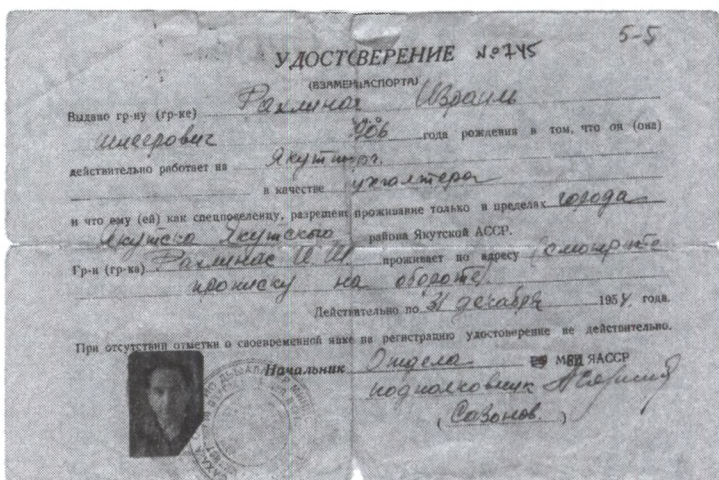 5-5
УДОСТОВЕРЕНИЕ №745
(ВЗАМЕН ПАСПОРТА)
Выдано гр-ну (гр-ке) Рахлинас Израиль
906 года рождения в том, что он (она)
действительно работает на
в качестве бухгалтера
и что ему (ей) как спецпоселенцу, разрешено проживание только в пределах города
Якутска Якутского района Якутской АССР.
Гр-н (гр-ка) Рахлинас И. Ш. проживает по адресу (смотрите
прописку на обороте).
Действительно по 31 декабря 1954 года.
При отсутствии отметки о своевременной явке на регистрацию удостоверение не действительно.
Начальник Отдела МВД ЯАССР
подполковник
(Сазонов.)